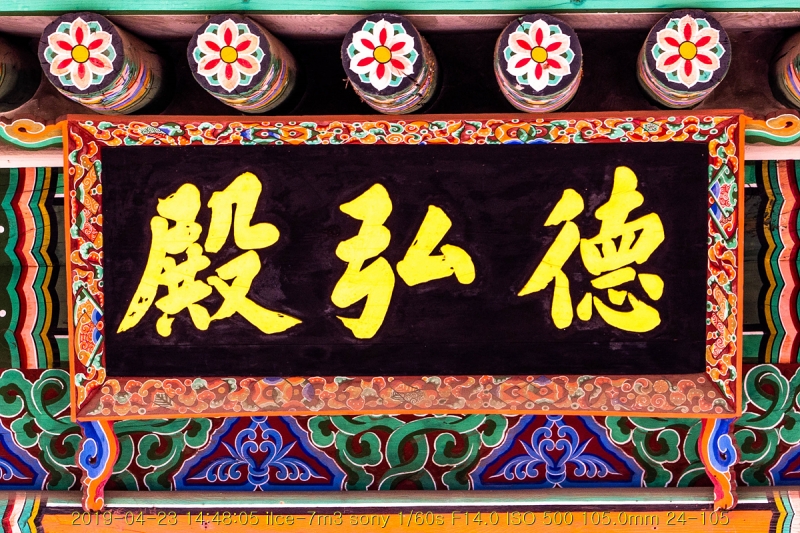 德弘殿
2019-04-23 14:48:05 ilce-7m3 sony 1/60s F14.0 ISO 500 105.0mm 24-105